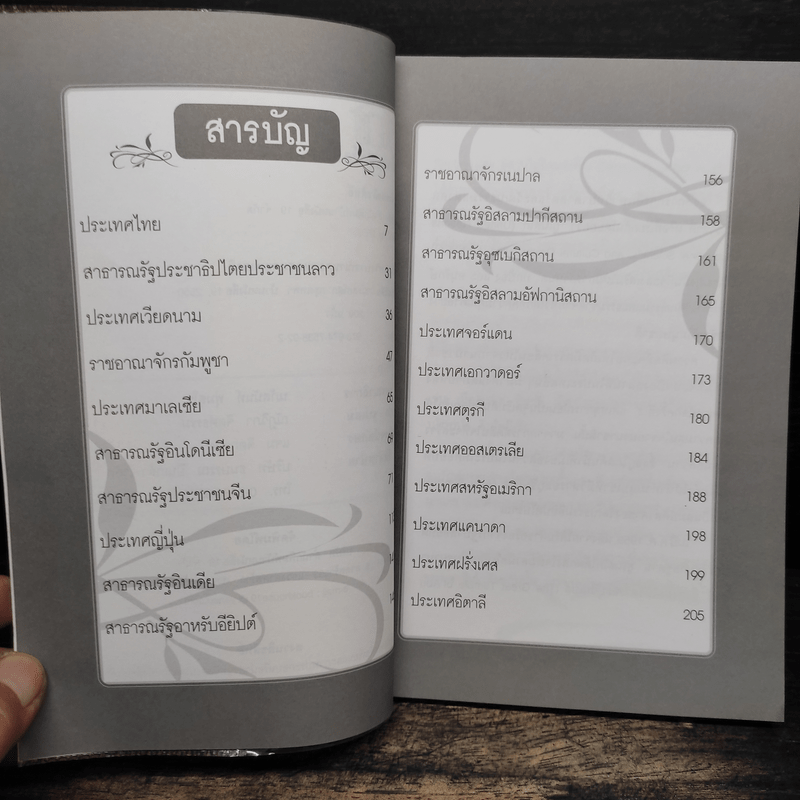 สารบัญ
ประเทศไทย 7
สาธารณรัฐประชาธิปไตยประชาชนลาว 31
ประเทศเวียดนาม 36
ราชอาณาจักรกัมพูชา 47
ประเทศมาเลเซีย 65
สาธารณรัฐอินโดนีเซีย 69
สาธารณรัฐประชาชนจีน
ประเทศญี่ปุ่น
สาธารณรัฐอินเดีย
สาธารณรัฐอาหรับอียิปต์
ราชอาณาจักรเนปาล 156
สาธารณรัฐอิสลามปากีสถาน 158
สาธารณรัฐอุซเบกิสถาน 161
สาธารณรัฐอิสลามอัฟกานิสถาน 165
ประเทศจอร์แดน 170
ประเทศเอกวาดอร์ 173
ประเทศตุรกี 180
ประเทศออสเตรเลีย 184
ประเทศสหรัฐอเมริกา 188
ประเทศแคนาดา 198
ประเทศฝรั่งเศส 199
ประเทศอิตาลี 205